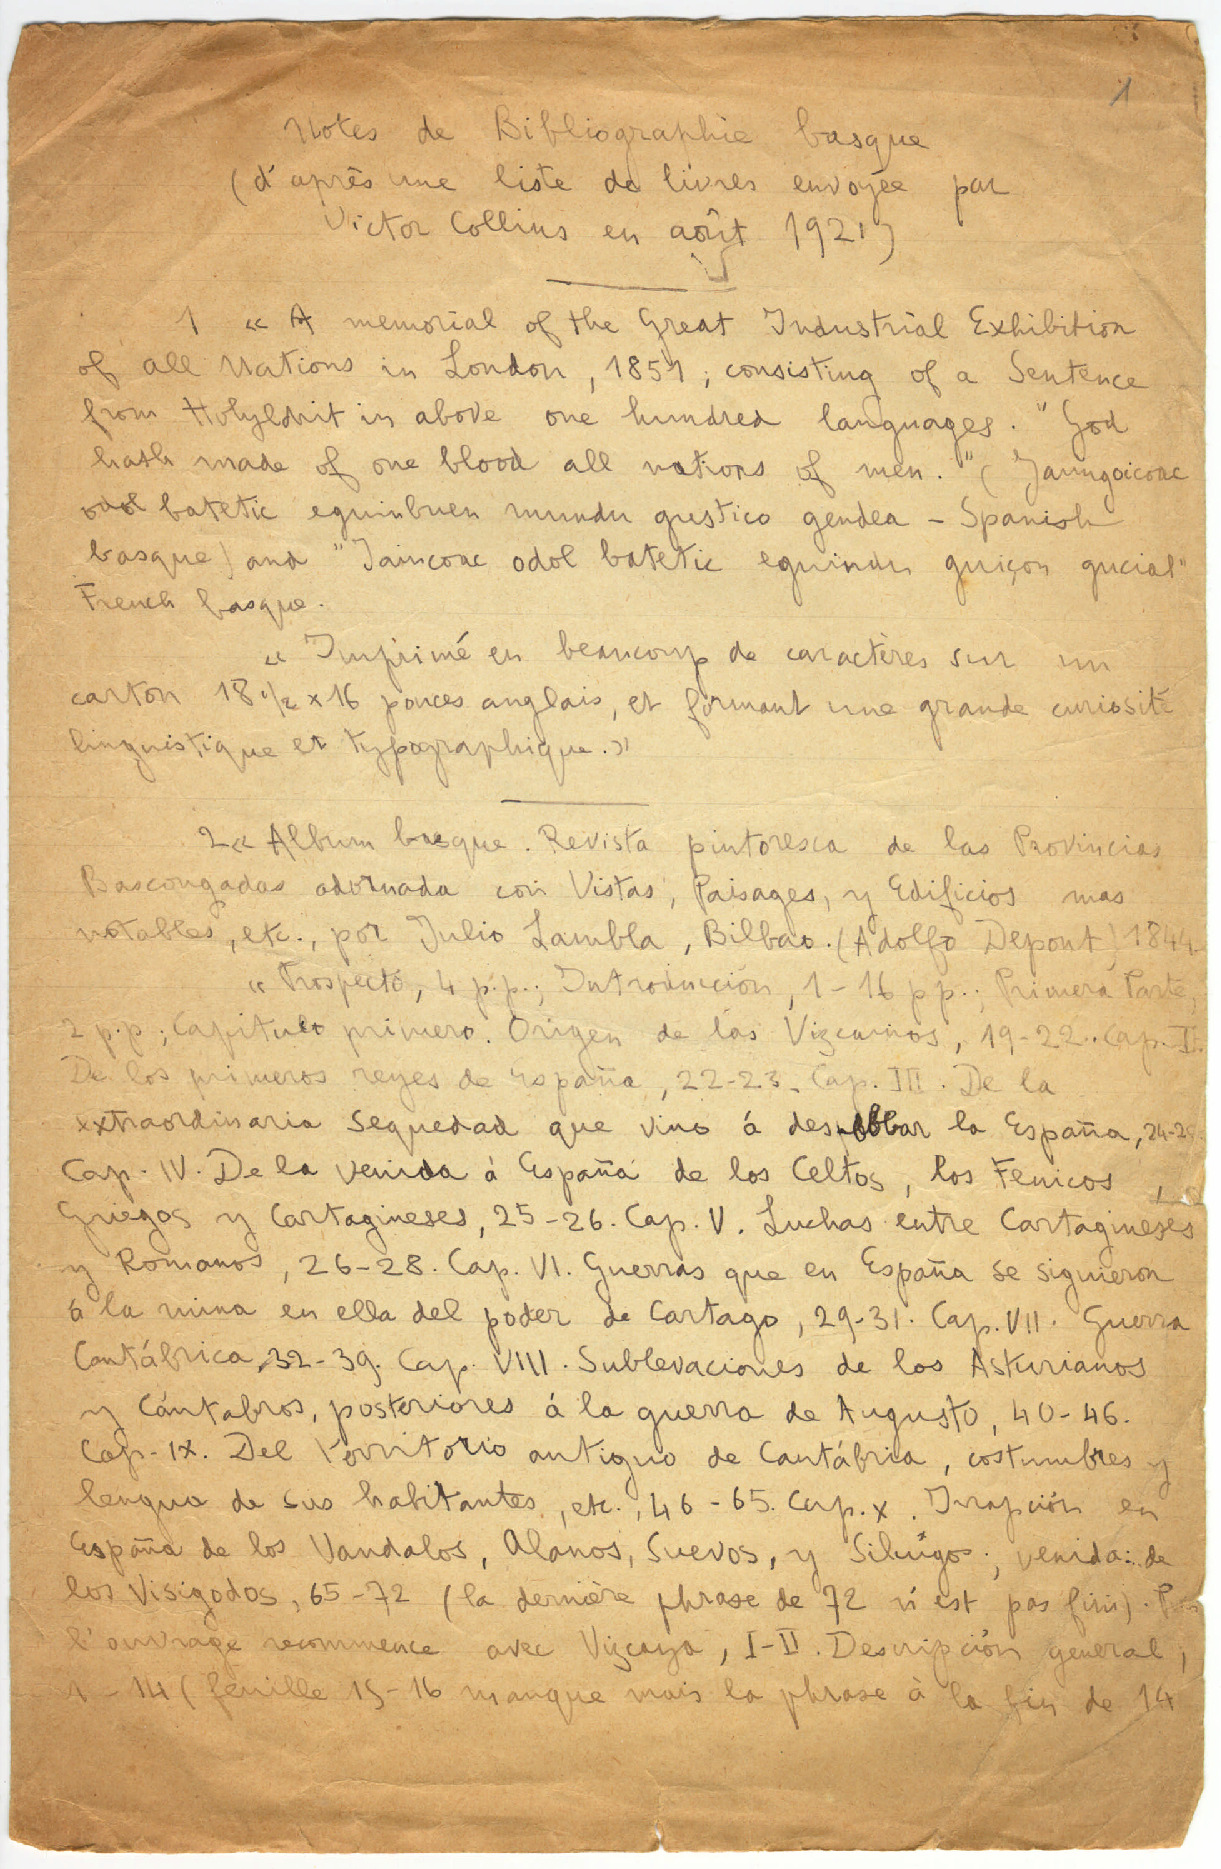 1
Notes de Bibliographie basque
(d'après une liste de livres envoyée par
Victor Collins en août 1921)
1 « A memorial of the Great Industrial Exhibition
of all Nations in London, 1851; consisting of a Sentence
from Holy in above one hundred languages. "God
hath made of one blood all nations of men." (Jaungoicoac
odol batetic eguinbuen mundu gustico gendea - Spanish
basque) and "Jaincoac odol batetic eguindu guiçon guciac"
French basque.
« Imprimé en beaucoup de caractères sur un
carton 18 1/2 x 16 pouces anglais, et formant une grande curiosité
linguistique et typographique.»
2 « Album basque. Revista pintoresca de las Provincias
Bascongadas adornada con Vistas, Paisages, y Edificios mas
notables, etc., por Julio Lambla, Bilbao. (Adolfo Depont) 1844.
« Prospecto, 4 p.p.; Introducción, 1-16 pp.; Primera Parte,
2 p.p; Capitulo primero. Origen de los Vizcainos, 19-22. Cap. II.
De los primeros reyes de España, 22-23. Cap. III. De la
extraordinaria sequedad que vino á la España, 24-25
Cap. IV. De la venida á España de los Celtos, los Fenicos,
Griegos y Cartagineses, 25-26. Cap. V. Luchas entre Cartagineses
y Romanos, 26-28. Cap. VI. Guerras que en España se siguieron
á la ruina en ella del poder de Cartago, 29-31. Cap. VII. Guerra
Cantábrica, 32-39. Cap. VIII. Sublevaciones de los Asturianos
y Cántabros, posteriores á la guerra de Augusto, 40-46.
Cap. IX. Del Territorio antiguo de Cantábria, costumbres y
lengua de sus habitantes, etc., 46-65. Cap. X. Irrupción en
España de los Vandalos, Alanos, Suevos, y Silingos; venida de
los Visigodos, 65-72 (la dernière phrase de 72 n'est pas fini).
l'ouvrage recommence avec Vizcaya, I-II. Descripción general,
1-14 (feuille 15-16 manque mais la phrase à la fin de 14